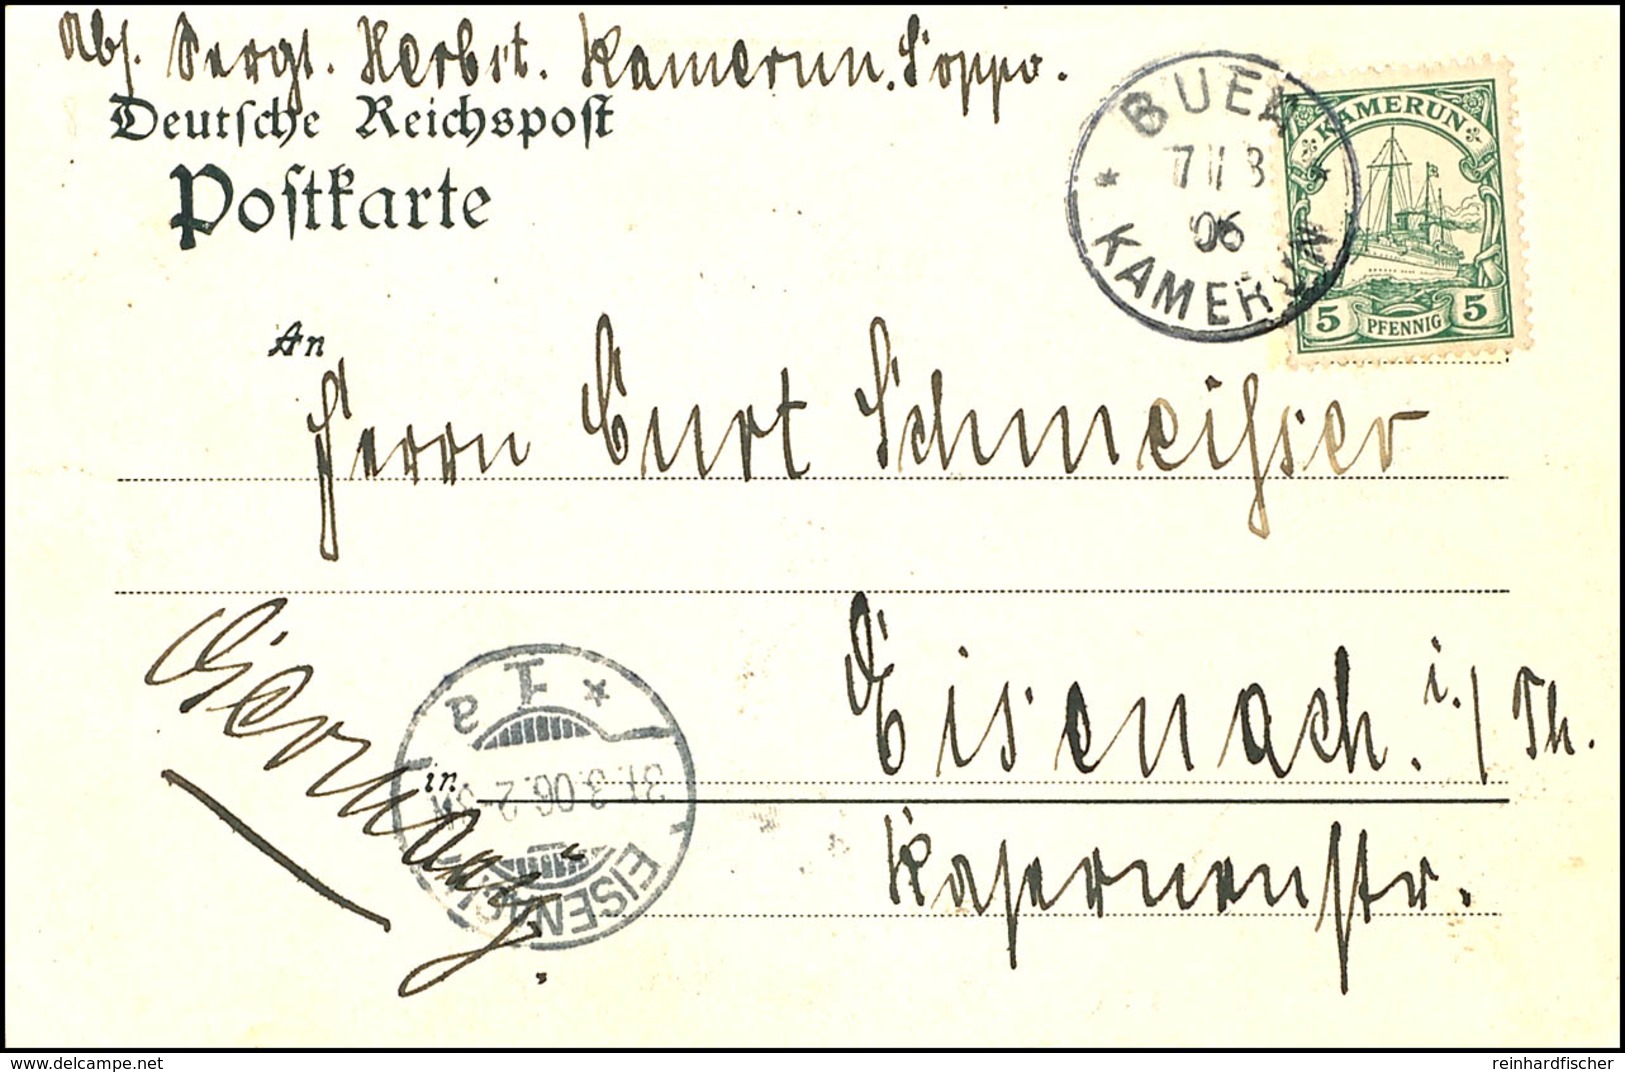 Abs. Sergt. Herbst. Kamerun. Soppo.
Deutsche Reichspost
Postkarte
BUEA
7/3
06
KAMERUN
KAMERUN
5 PFENNIG 5
An
Herrn Curt Schmeisser
Eisenach. i./Th.
Germany.
in
Kasernenstr.
* 1 a
31.3.06.2-3N
EISENACH
www.delcampe.net
reinhardfischer